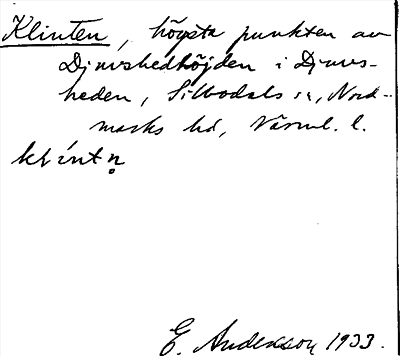 Klinten, högsta punkten av
Djurshedhöjden i Djurs-
heden, Silbodals sn, Nord-
marks hd, Värml. l.
klíntn̥
E. Anderson 1933.